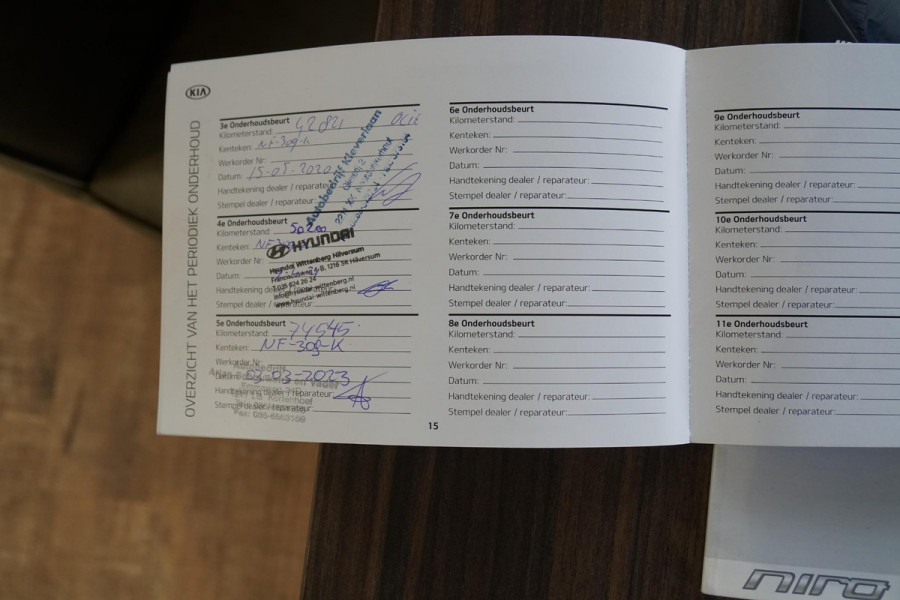 KIA
OVERZICHT VAN HET PERIODIEK ONDERHOUD
3e Onderhoudsbeurt
Kilometerstand: 42821
Kenteken: NF-309-K
Werkorder Nr:
Datum: 15-05-2020
Handtekening dealer / reparateur:
Stempel dealer / reparateur:
Autobedrijf Kleverlaan
4e Onderhoudsbeurt
Kilometerstand: 50200
Kenteken:
HYUNDAI
Werkorder Nr:
Hyundai Wittenberg Hilversum
6-B, 1216 SK Hilversum
Datum:
T 035 624 26 24
Handtekening dealer /
info@hyundai-wittenberg.nl
www.hyundai-wittenberg.nl
Stempel dealer /
5e Onderhoudsbeurt
Kilometerstand: 74545
Kenteken: NF-309-K
Werkorder Nr:
Datum: 03-03-2023
Handtekening dealer / reparateur:
Stempel dealer / reparateur:
15
6e Onderhoudsbeurt
Kilometerstand:
Kenteken:
Werkorder Nr:
Datum:
Handtekening dealer / reparateur:
Stempel dealer / reparateur:
7e Onderhoudsbeurt
Kilometerstand:
Kenteken:
Werkorder Nr:
Datum:
Handtekening dealer / reparateur:
Stempel dealer / reparateur:
8e Onderhoudsbeurt
Kilometerstand:
Kenteken:
Werkorder Nr:
Datum:
Handtekening dealer / reparateur:
Stempel dealer / reparateur:
9e Onderhoudsbeurt
Kilometerstand:
Kenteken:
Werkorder Nr:
Datum:
Handtekening dealer / reparateur:
Stempel dealer / reparateur:
10e Onderhoudsbeurt
Kilometerstand:
Kenteken:
Werkorder Nr:
Datum:
Handtekening dealer / reparateur:
Stempel dealer / reparateur:
11e Onderhoudsbeurt
Kilometerstand:
Kenteken:
Werkorder Nr:
Datum:
Handtekening dealer / reparateur:
Stempel dealer / reparateur:
niro